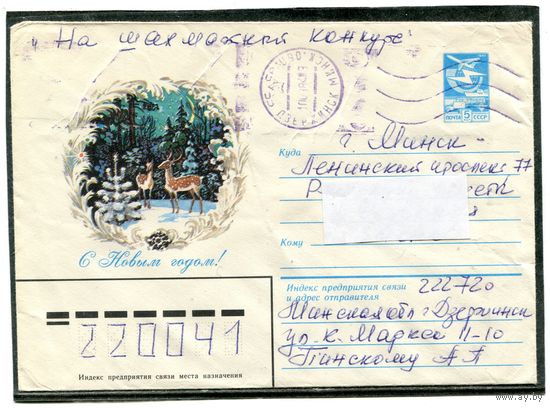 "На шахматный конкурс"
ПОЧТА 5 СССР
С Новым годом!
Куда г. Минск -
Ленинский проспект 77
Кому
Индекс предприятия связи
и адрес отправителя 222720
Минская обл г Дзержинск
ул. К. Маркса 11-10
Пинскому А А
220041
Индекс предприятия связи места назначения
www.ay.by